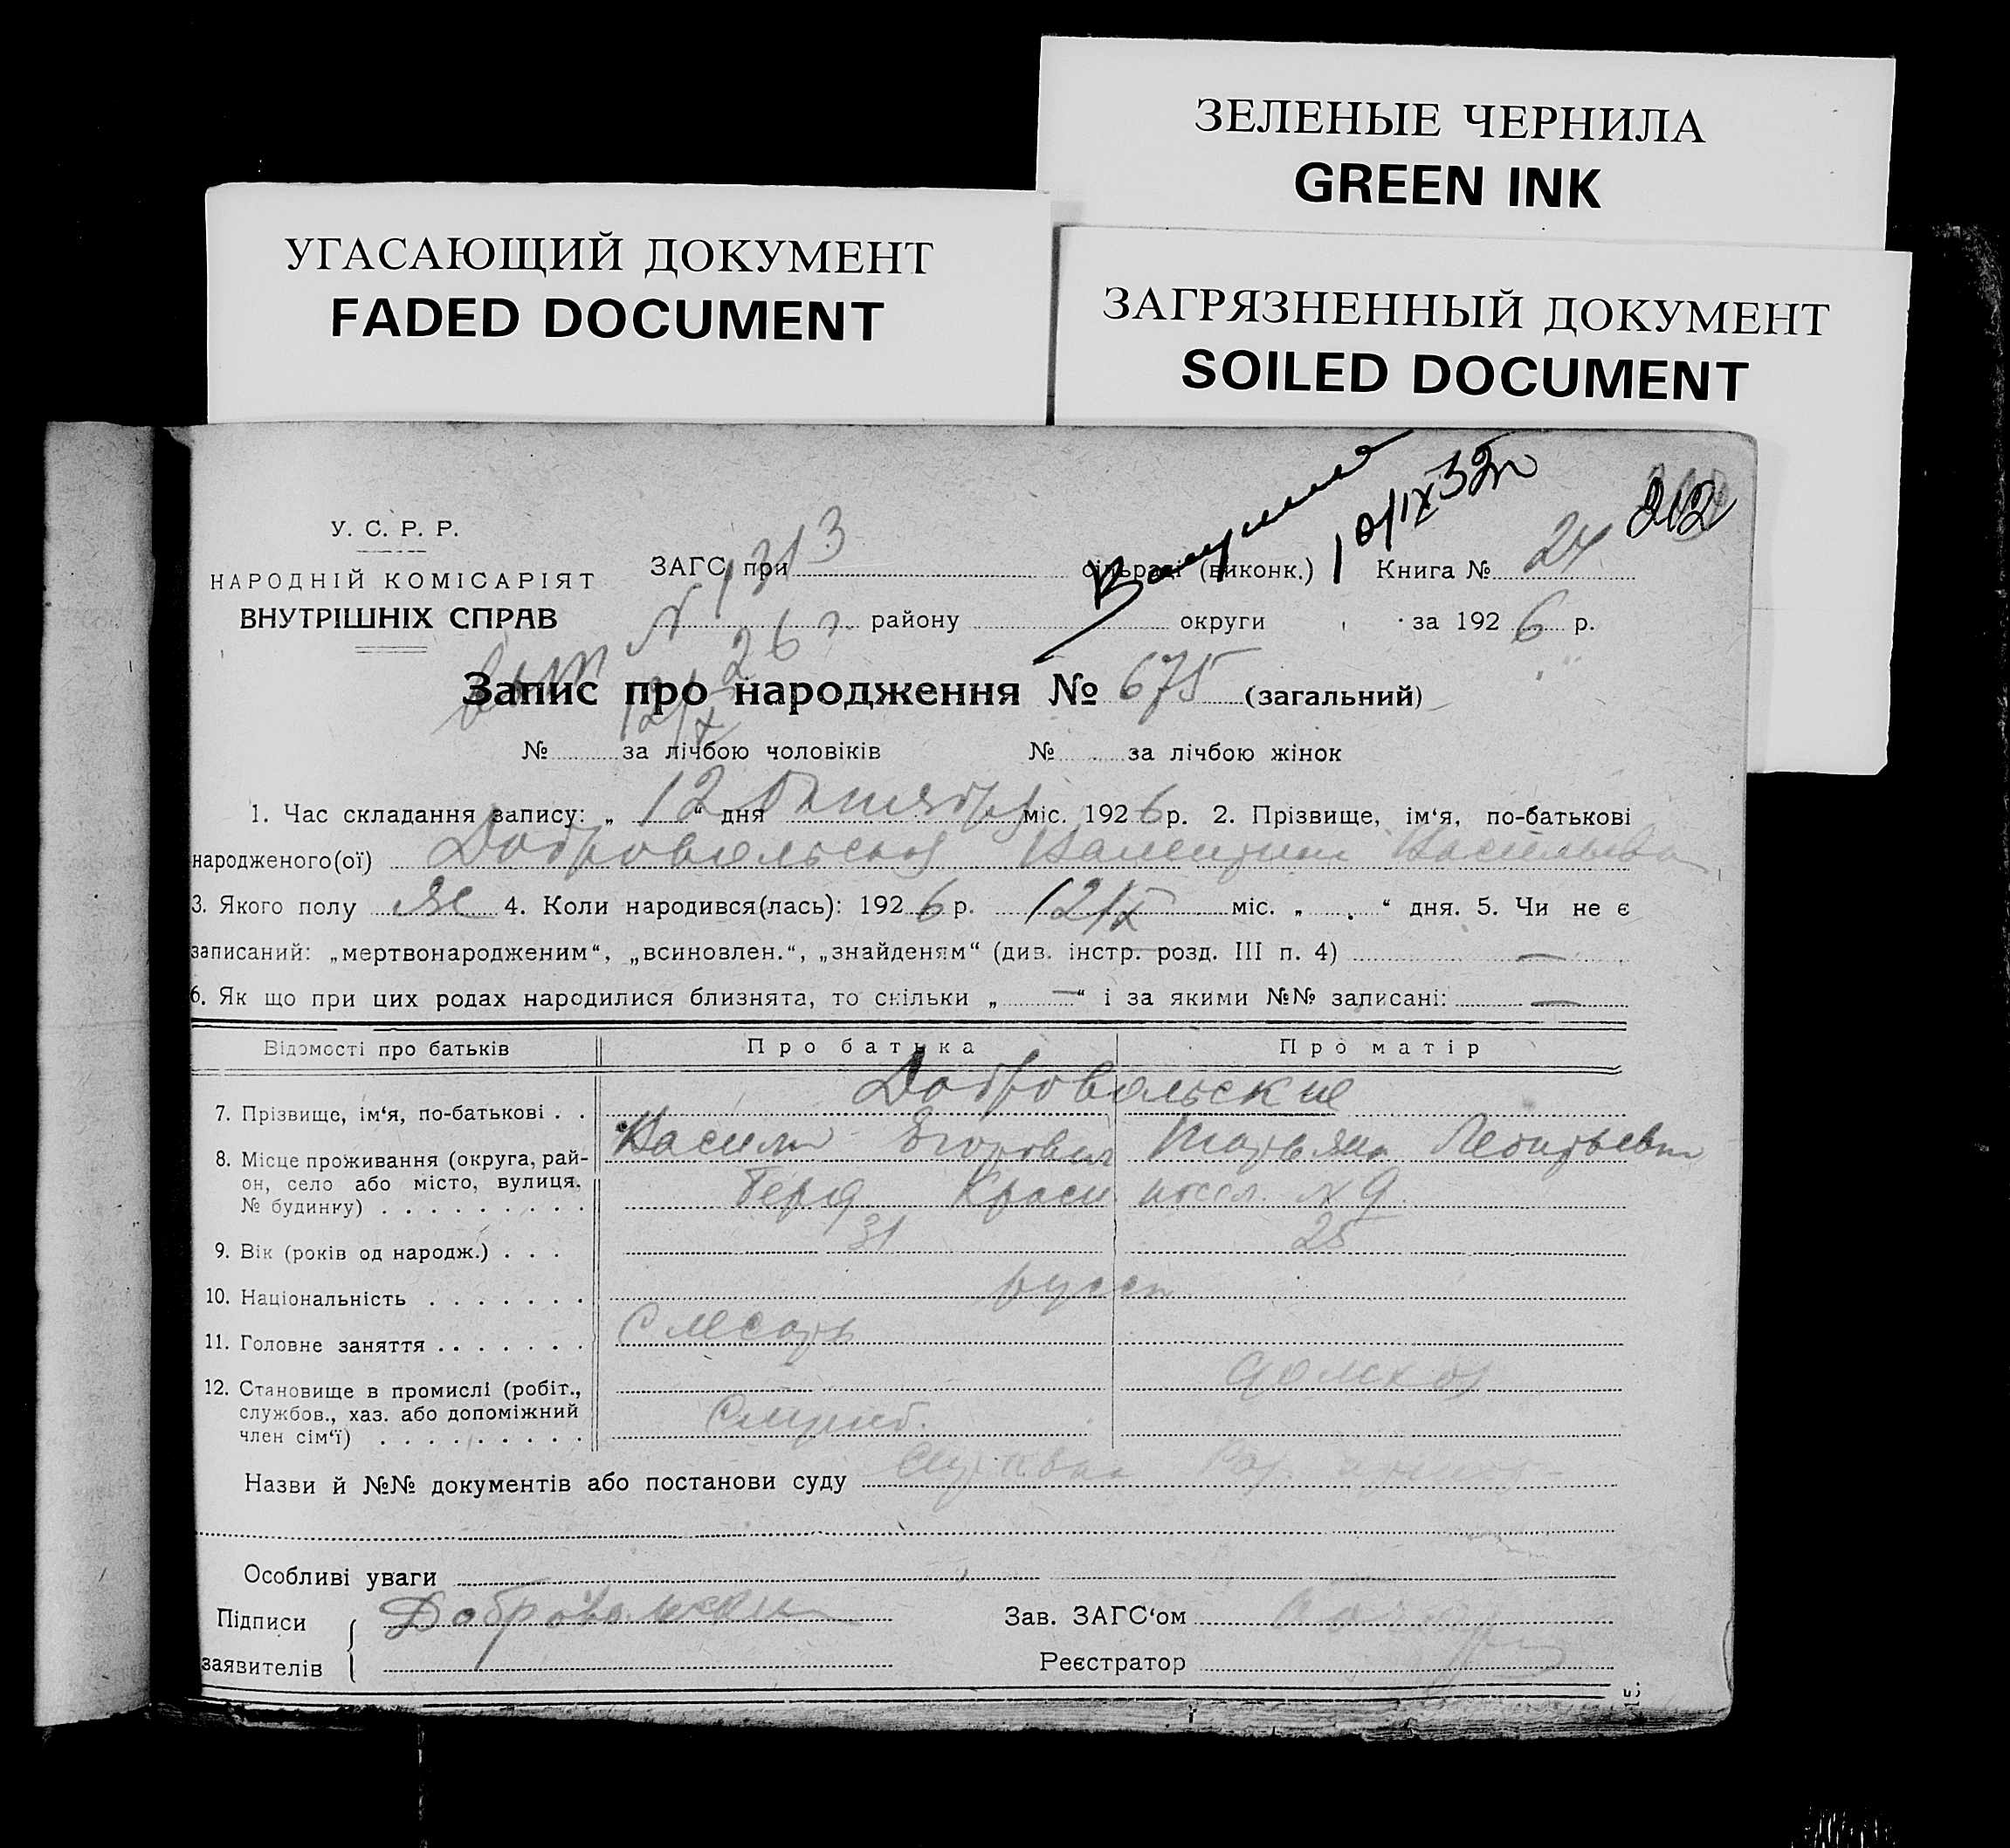 ЗЕЛЕНЫЕ ЧЕРНИЛА
GREEN INK
УГАСАЮЩИЙ ДОКУМЕНТ
FADED DOCUMENT
ЗАГРЯЗНЕННЫЙ ДОКУМЕНТ
SOILED DOCUMENT
212
10/IX 32
У. С. Р. Р.
НАРОДНІЙ КОМІСАРІЯТ
ВНУТРІШНІХ СПРАВ
ЗАГС при сільраді (виконк.) Книга № 24
району округи за 1926 р.
№ 1313
12/X 26 г
Запис про народження № 675 (загальний)
№ за лічбою чоловіків № за лічбою жінок
1. Час складання запису: „ 12 “ дня Октября міс. 1926 р. 2. Прізвище, ім‘я, по-батькові
народженого(ої) Добровольская Валентина Васильевна
3. Якого полу же 4. Коли народився(лась): 1926 р. 12/X міс. „ “ дня. 5. Чи не є
записаний: „мертвонародженим“, „всиновлен.“, „знайденям“ (див. інстр. розд. III п. 4) —
6. Як що при цих родах народилися близнята, то скільки „ — “ і за якими №№ записані: —
Відомості про батьків Про батька Про матір
Добровольские
7. Прізвище, ім‘я, по-батькові . . Василий Егорович Татьяна Леонтьевна
8. Місце проживання (округа, рай-
он, село або місто, вулиця,
№ будинку) . . . . . . . . . Красн. посел. № 9
9. Вік (років од народж.) . . . 31 25
10. Національність . . . . . . . русск
11. Головне заняття . . . . . . . Слесарь
домхоз
12. Становище в промислі (робіт.,
службов., хаз. або допоміжний
член сім‘ї) . . . . . . . . .
Назви й №№ документів або постанови суду
Особливі уваги
Підписи Добровольский Зав. ЗАГС‘ом
заявителів Реєстратор